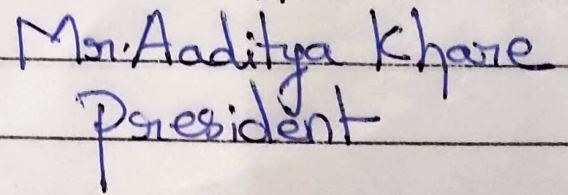 Mr. Aaditya Khare
President